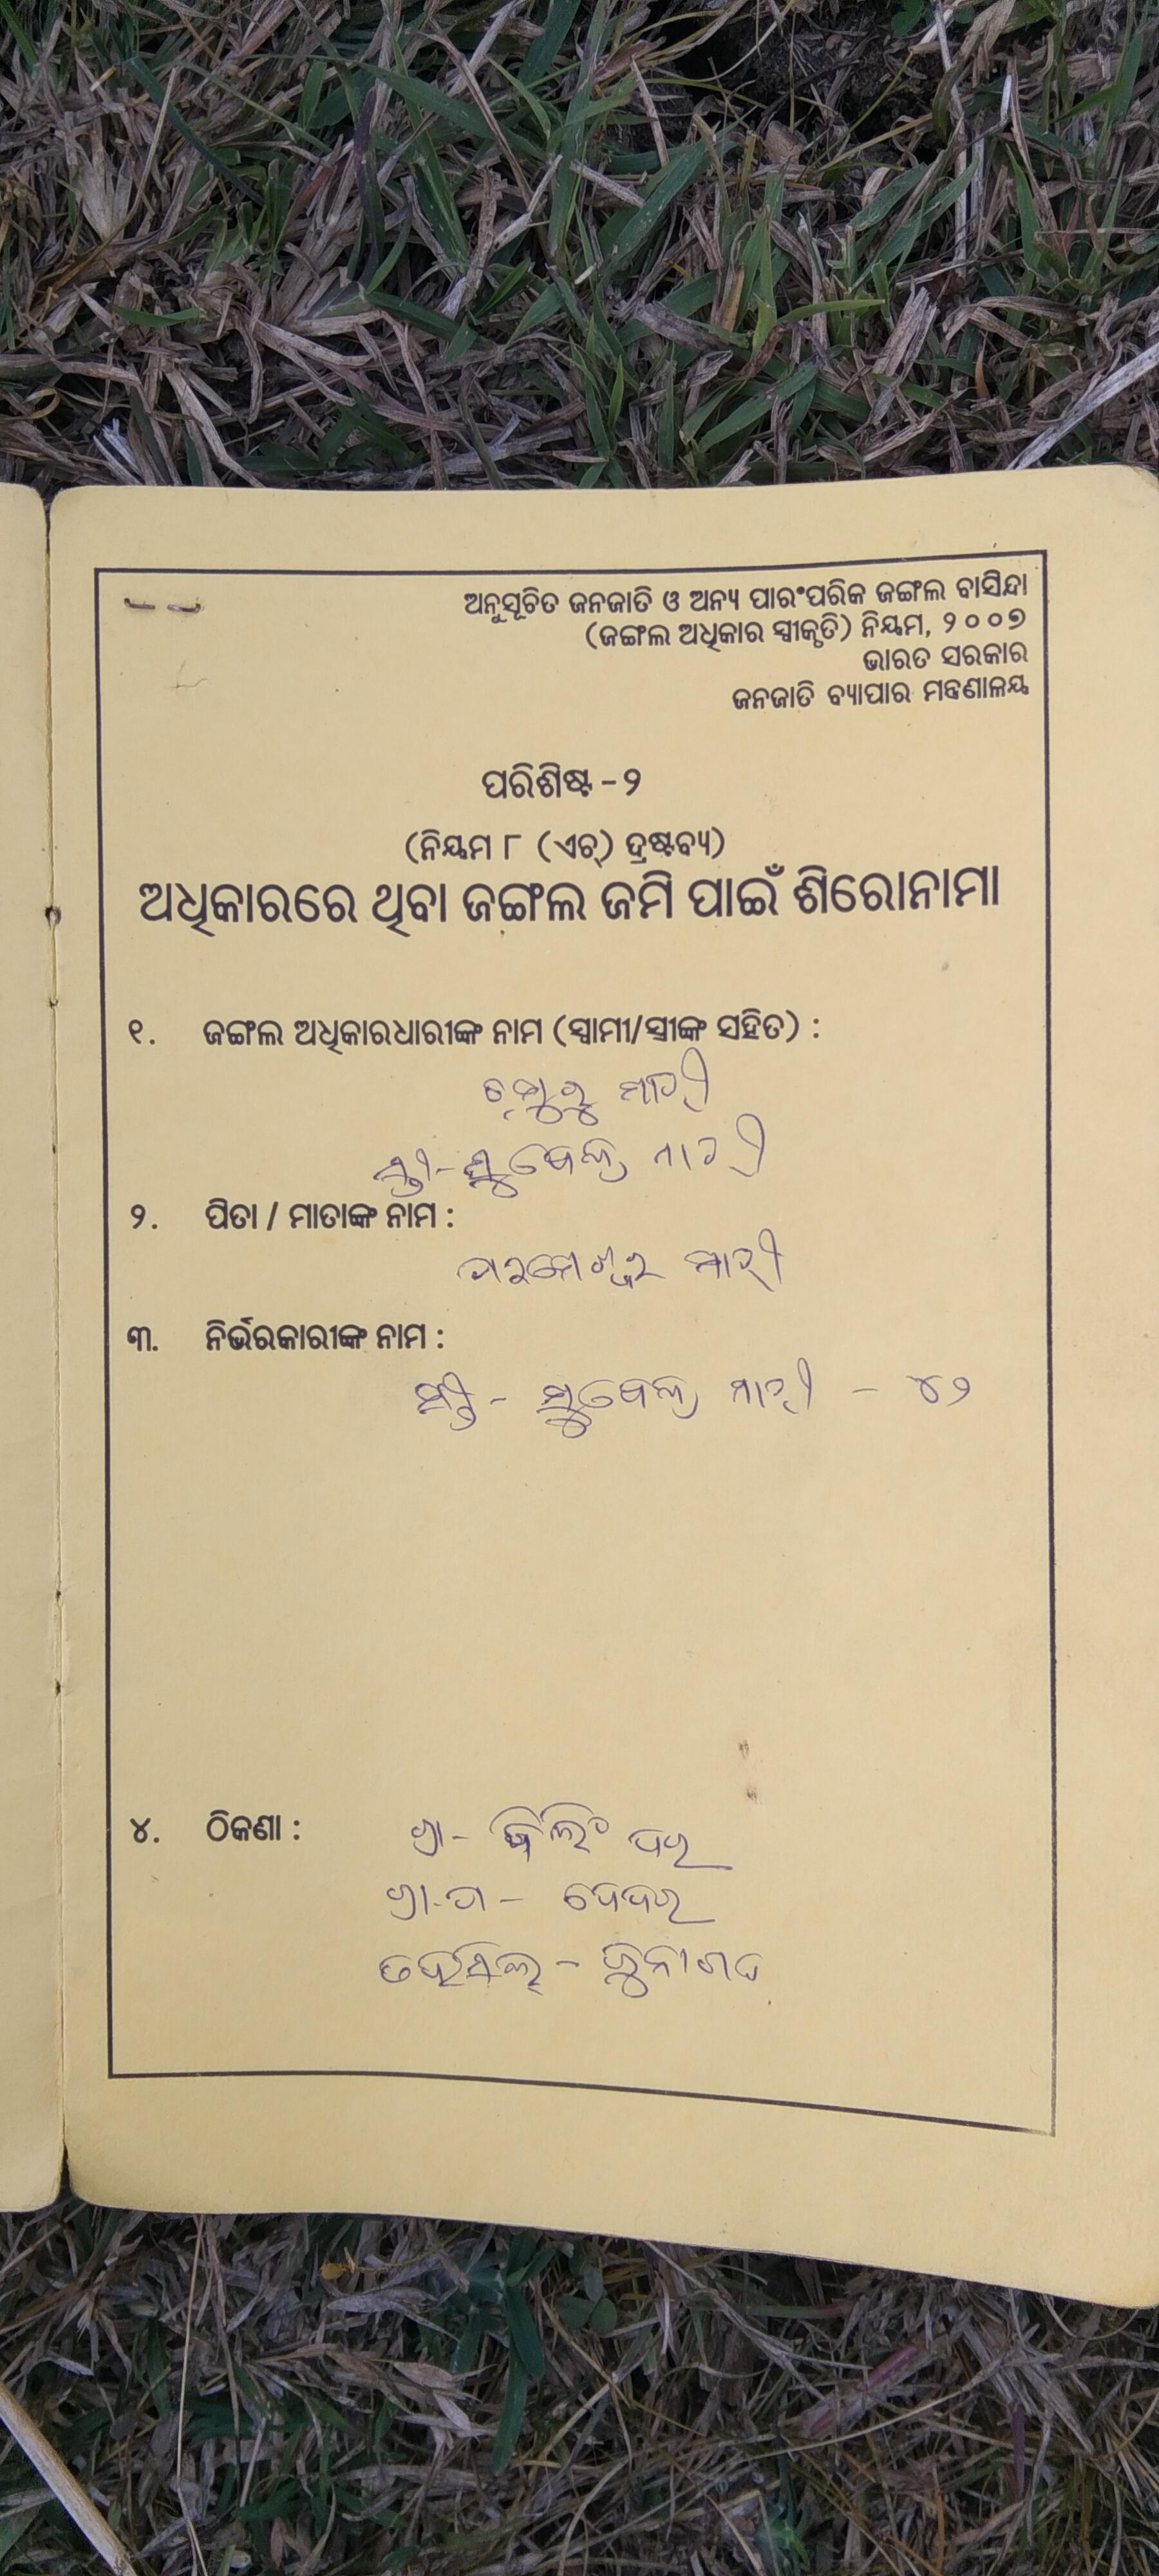 ଅନୁସୂଚିତ ଜନଜାତି ଓ ଅନ୍ୟ ପାରଂପରିକ ଜଙ୍ଗଲ ବାସିନ୍ଦା
(ଜଙ୍ଗଲ ଅଧିକାର ସ୍ୱୀକୃତି) ନିୟମ, ୨୦୦୭
ଭାରତ ସରକାର
ଜନଜାତି ବ୍ୟାପାର ମନ୍ତ୍ରଣାଳୟ
ପରିଶିଷ୍ଟ - ୨
(ନିୟମ ୮ (ଏଚ୍) ଦ୍ରଷ୍ଟବ୍ୟ)
ଅଧିକାରରେ ଥିବା ଜଙ୍ଗଲ ଜମି ପାଇଁ ଶିରୋନାମା
୧. ଜଙ୍ଗଲ ଅଧିକାରଧାରୀଙ୍କ ନାମ (ସ୍ୱାମୀ/ସ୍ତ୍ରୀଙ୍କ ସହିତ) :
ମାଝୀ
ସ୍ତ୍ରୀ - ମାଝୀ
୨. ପିତା / ମାତାଙ୍କ ନାମ :
ପରମେଶ୍ୱର ମାଝୀ
୩. ନିର୍ଭରକାରୀଙ୍କ ନାମ :
ସ୍ତ୍ରୀ - ମାଝୀ - ୪୨
୪. ଠିକଣା : ଗ୍ରା -
ଗ୍ରା.ପ - ଦେଦର
ତହସିଲ - ଜୁନାଗଡ